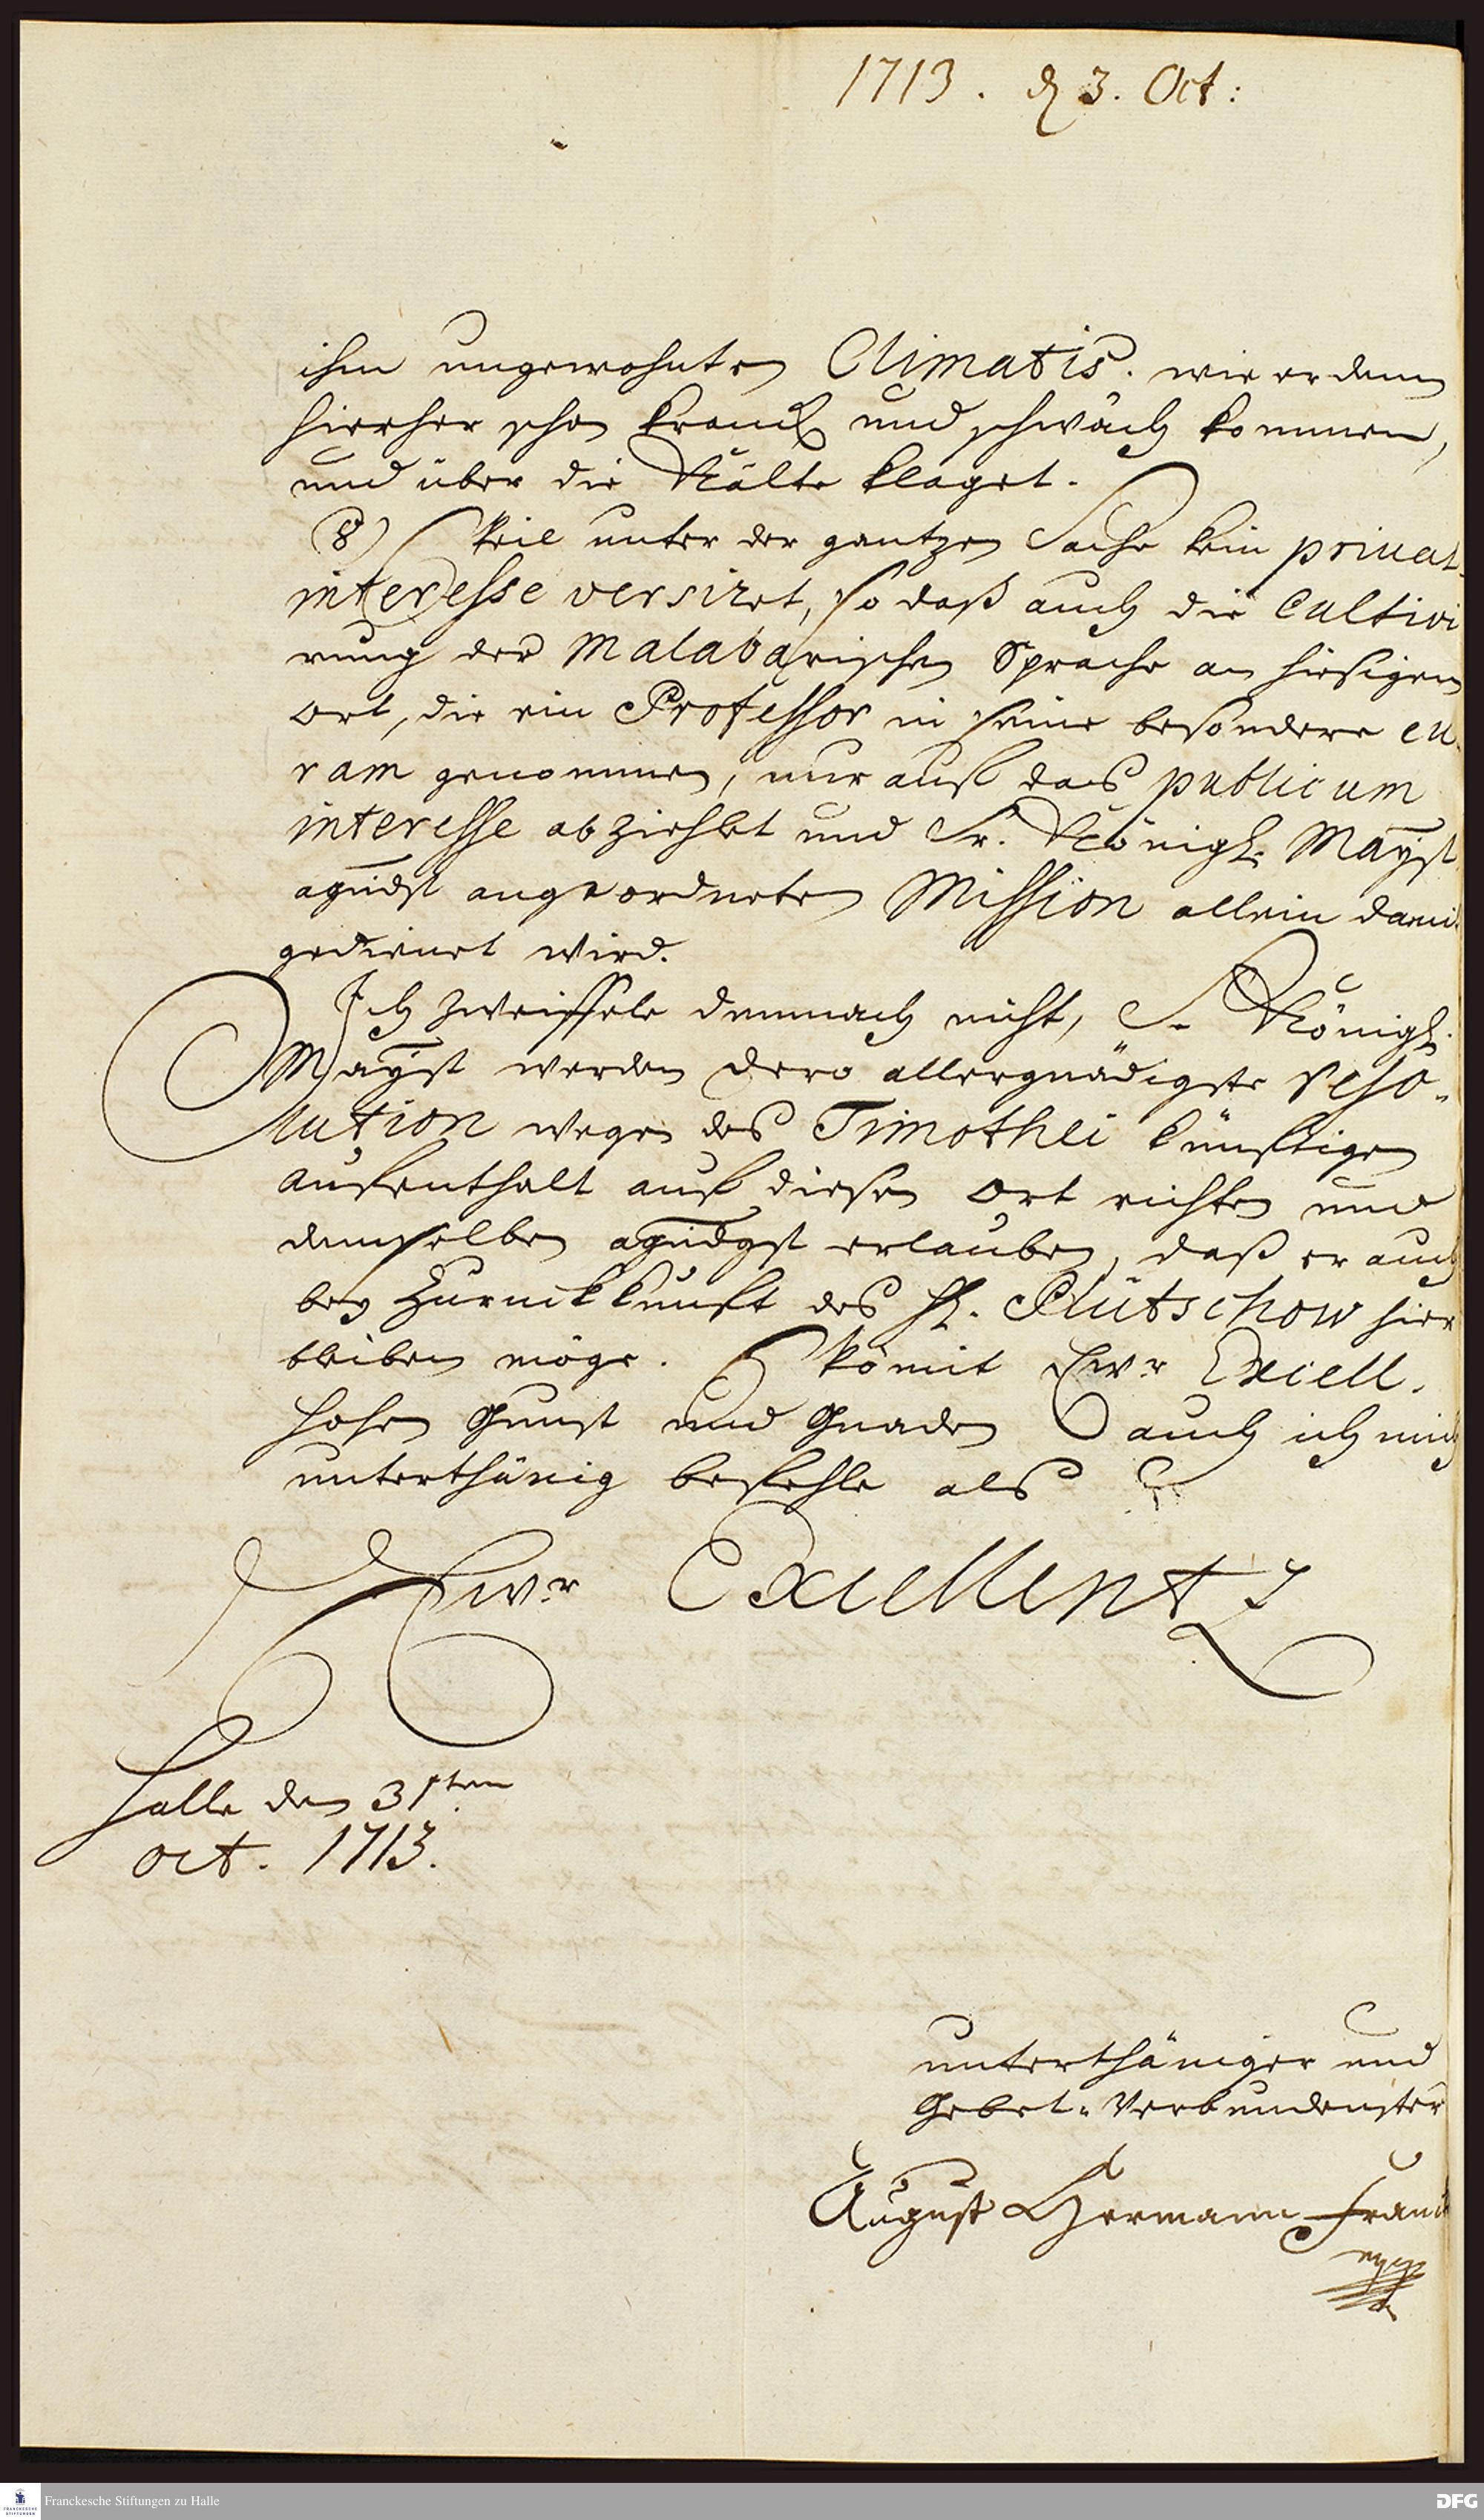 1713. d 3. Oct:
ihm ungewohnten Climatis. wie er denn
hierher schon kranck und schwach kommen,
und über die Kälte klaget.
8) Weil unter der gantzen Sache kein privat-
interesse versiret, so daß auch die Cultivi
rung der Malabarischen Sprache an hiesigem
Ort, die ein Professor in seine besondere cu-
ram genommen, nur auff das publicum
interesse abziehlet und Sr. Königl. Mayst
agndst angeordneten Mission allein dami
gedienet wird.
Ich zweiffele demnach nicht, Se Königl.
Mayst werden dero allergnädigste reso-
lution wegen des Timothei künfftigen
auffenthalt auff diesen Ort richten und
demselben agndgst erlauben, daß er auch
bey Zurückkunfft des H. Plütschow hier
bleiben möge. Womit Ewr Excell.
hohen Gunst und Gnaden auch ich mich
unterthänig befehle als
Ewr Excellentz
Halle den 3ten
Oct. 1713.
unterthäniger und
Gebet-Verbundenster
August Hermann Franck
mpp
Franckesche Stiftungen zu Halle
DFG